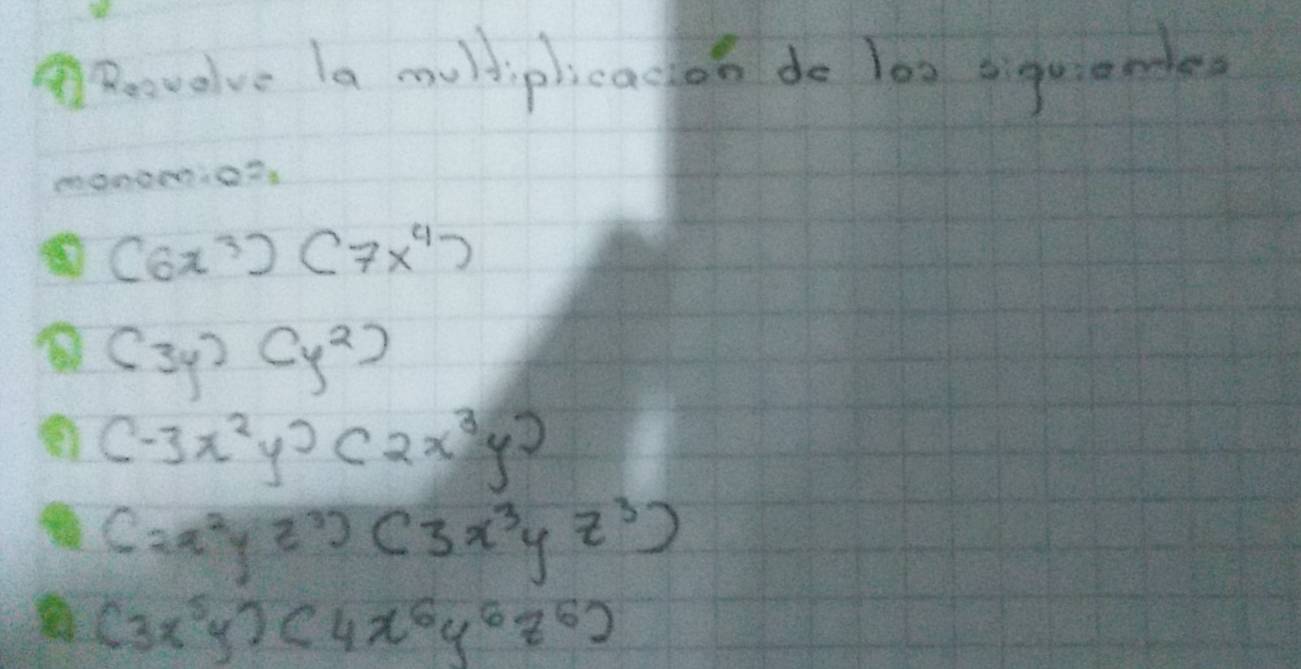 Resuelve la multiplicación de los siguientes
monomios.
(6x³) (7x⁴)
(3y) (y²)
(-3x²y) (2x³y)
(2x²yz³) (3x³yz³)
(3x⁵y) (4x⁶y⁶z⁶)